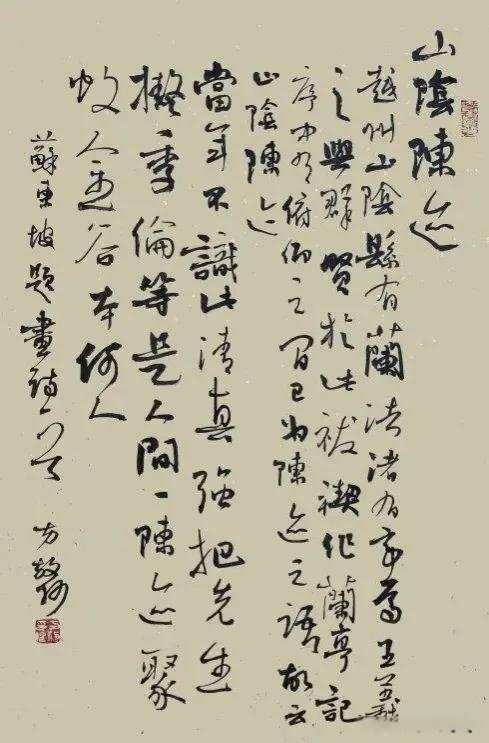 山陰陳迹
越州山陰縣有蘭渚渚有亭為王羲
之與群賢於此祓禊作蘭亭記
序中有俯仰之間已為陳迹之語故云
山陰陳迹
當年不識此清真強把先生
擬季倫等是人間一陳迹聚
蚊金谷本何人
蘇東坡題畫詩一首 方